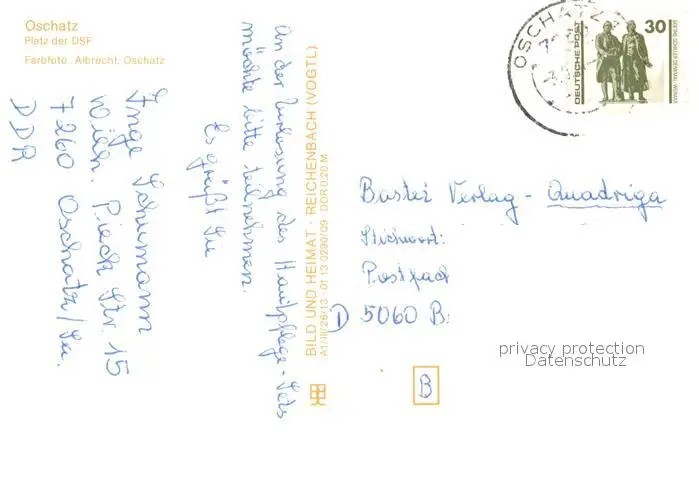 Oschatz
Platz der DSF
Farbfoto: Albrecht, Oschatz
An der Verlosung des Hautpflege-Sets
möchte bitte teilnehmen.
Es grüßt Sie
Inge Schumann
Wilh. Pieck Str. 15
7260 Oschatz/Sa.
DDR
BILD UND HEIMAT · REICHENBACH (VOGTL)
A1/III/26/13 · 01 13 0290/09 · DDR 0,20 M
OSCHATZ
DEUTSCHE POST
30
GOETHE-SCHILLER-DENKMAL WEIMAR
Bastei Verlag - Quadriga
Stichwort:
Postfach
D 5060 B.
B
privacy protection
Datenschutz